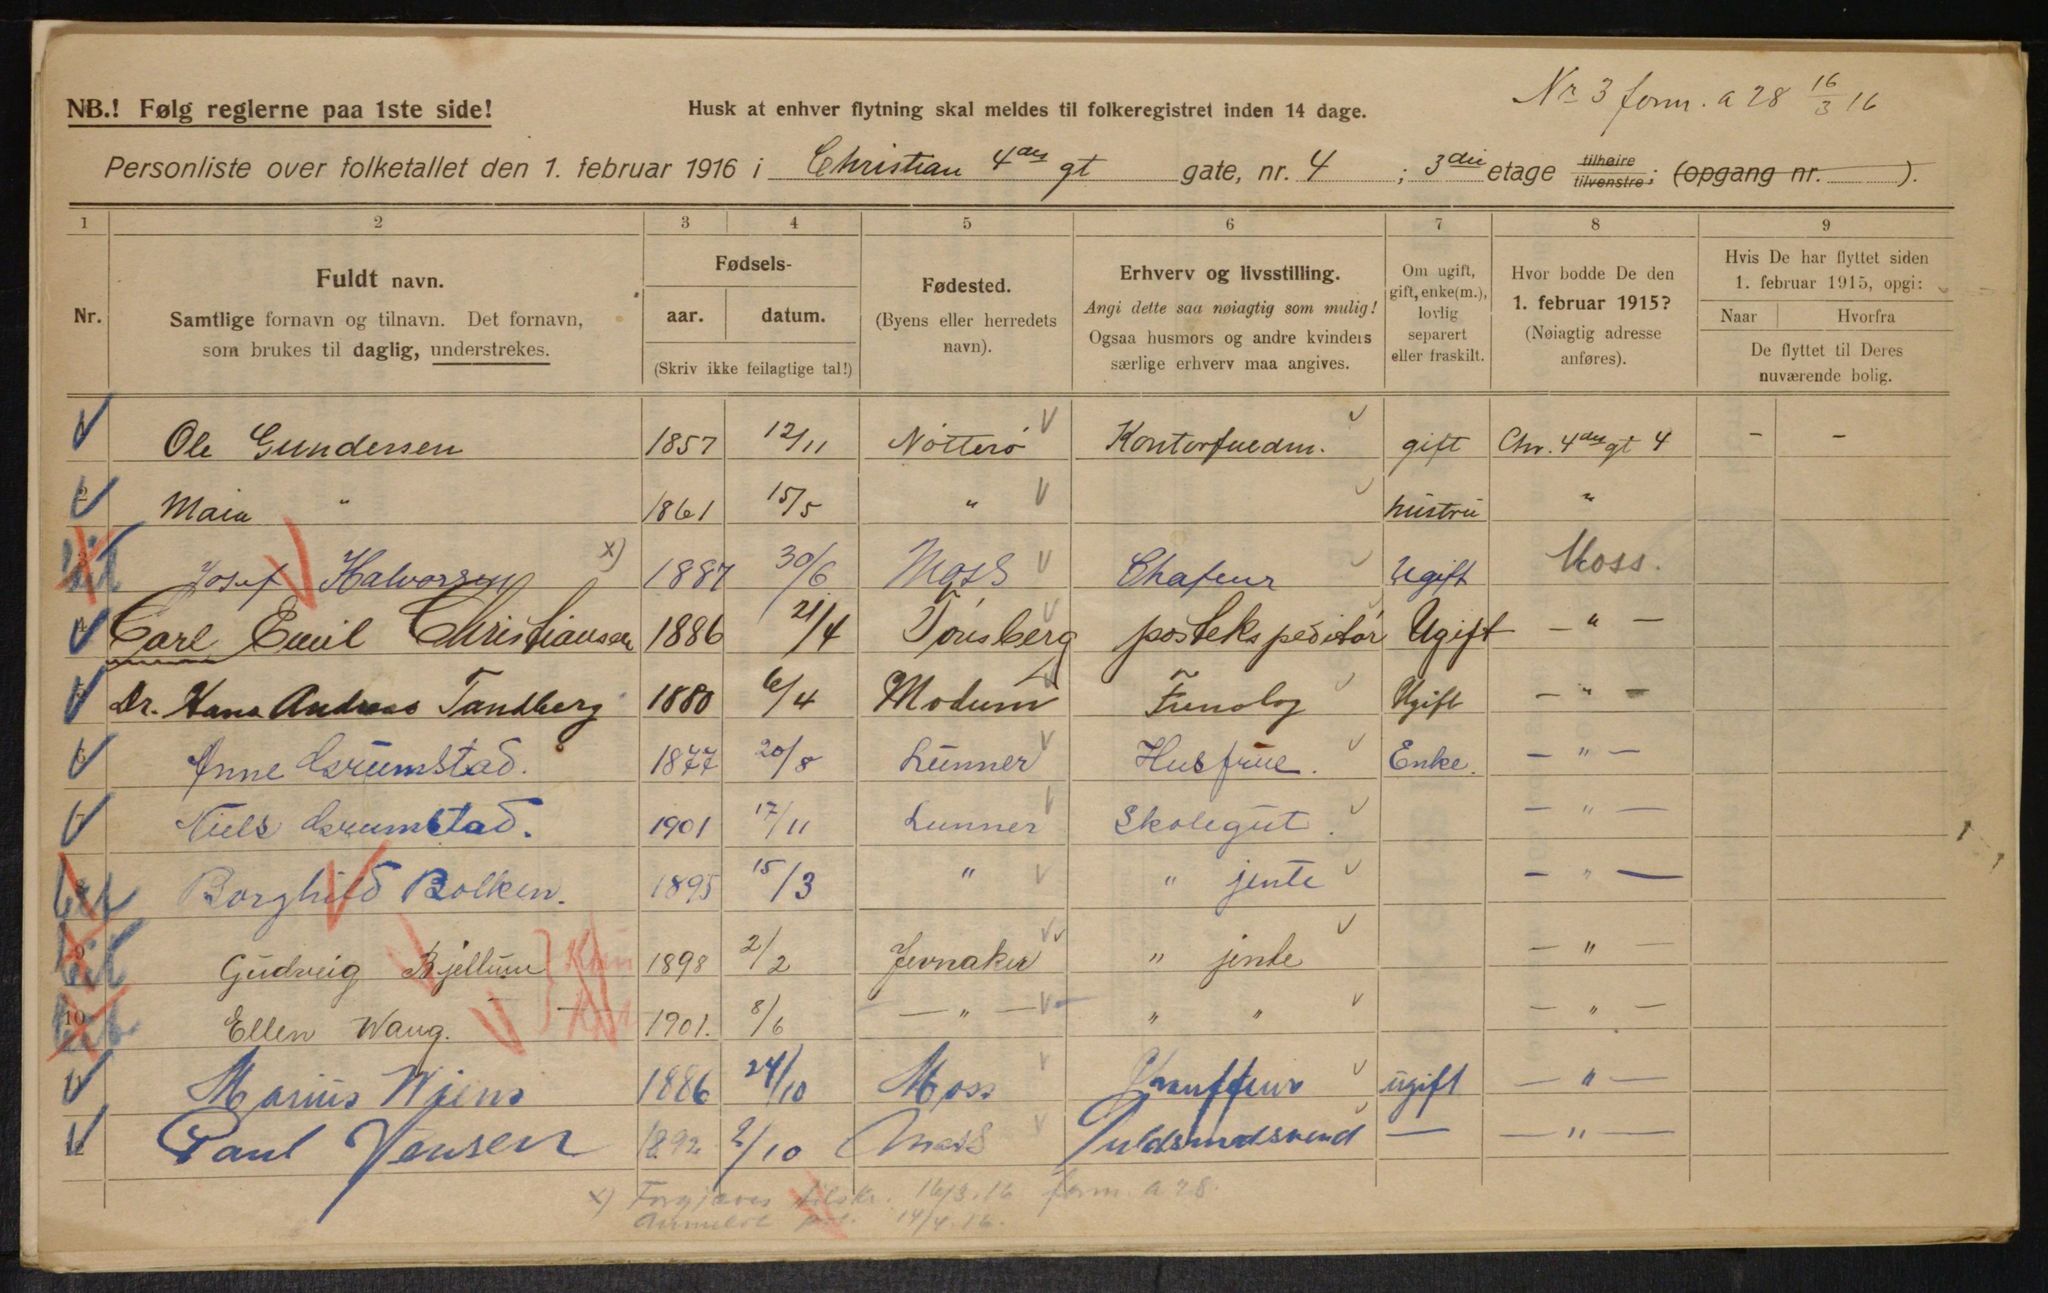 Nr 3 form. a 28 16/3 16
NB.! Følg reglerne paa 1ste side!
Husk at enhver flytning skal meldes til folkeregistret inden 14 dage.
Personliste over folketallet den 1. februar 1916 i Christian 4des gt gate, nr. 4 ; 3die etage tilhøire tilvenstre; (opgang nr. ).
1 2 3 4 5 6 7 8 9
Nr.
Fuldt navn.
Samtlige fornavn og tilnavn. Det fornavn,
som brukes til daglig, understrekes.
Fødsels-
aar. datum.
(Skriv ikke feilagtige tal!)
Fødested.
(Byens eller herredets
navn).
Erhverv og livsstilling.
Angi dette saa nøiagtig som mulig!
Ogsaa husmors og andre kvinders
særlige erhverv maa angives.
Om ugift,
gift, enke(m.),
lovlig
separert
eller fraskilt.
Hvor bodde De den
1. februar 1915?
(Nøiagtig adresse
anføres).
Hvis De har flyttet siden
1. februar 1915, opgi:
Naar Hvorfra
De flyttet til Deres
nuværende bolig.
Ole Gundersen 1857 12/11 Nøtterö Kontorfuedm. gift Chr. 4des gt 4 - -
2 Maia " 1861 15/5 " hustru "
3 Josef Halvorsen x) 1887 30/6 Moss Chafeur Ugift Moss.
4 Carl Emil Christiansen 1886 21/4 Tønsberg postekspeditør Ugift — " —
5 Dr. Hans Andreas Tandberg 1880 6/4 Modum Ugift — " —
6 Anne Grumstad. 1877 20/8 Lunner Husfrue. Enke. — " —
7 Niels Grumstad. 1901 17/11 Lunner Skolegut. — " —
8 Borghild Bolken. 1895 15/3 " " jente — " —
9 Gudveig Bjellum 1898 2/2 Jevnaker " jente — " —
10 Ellen Wang. 1901. 8/6 — " — " " — " —
11 Marius Wiens 1886 24/10 Moss Chauffeur ugift — " —
12 Paul Jensen 1892 2/10 Moss Guldsmedsvend — — " —
x) Forgjæves tilskr. 16/3.16 form. a 28.
Anmeldt pol. 14/4.16.